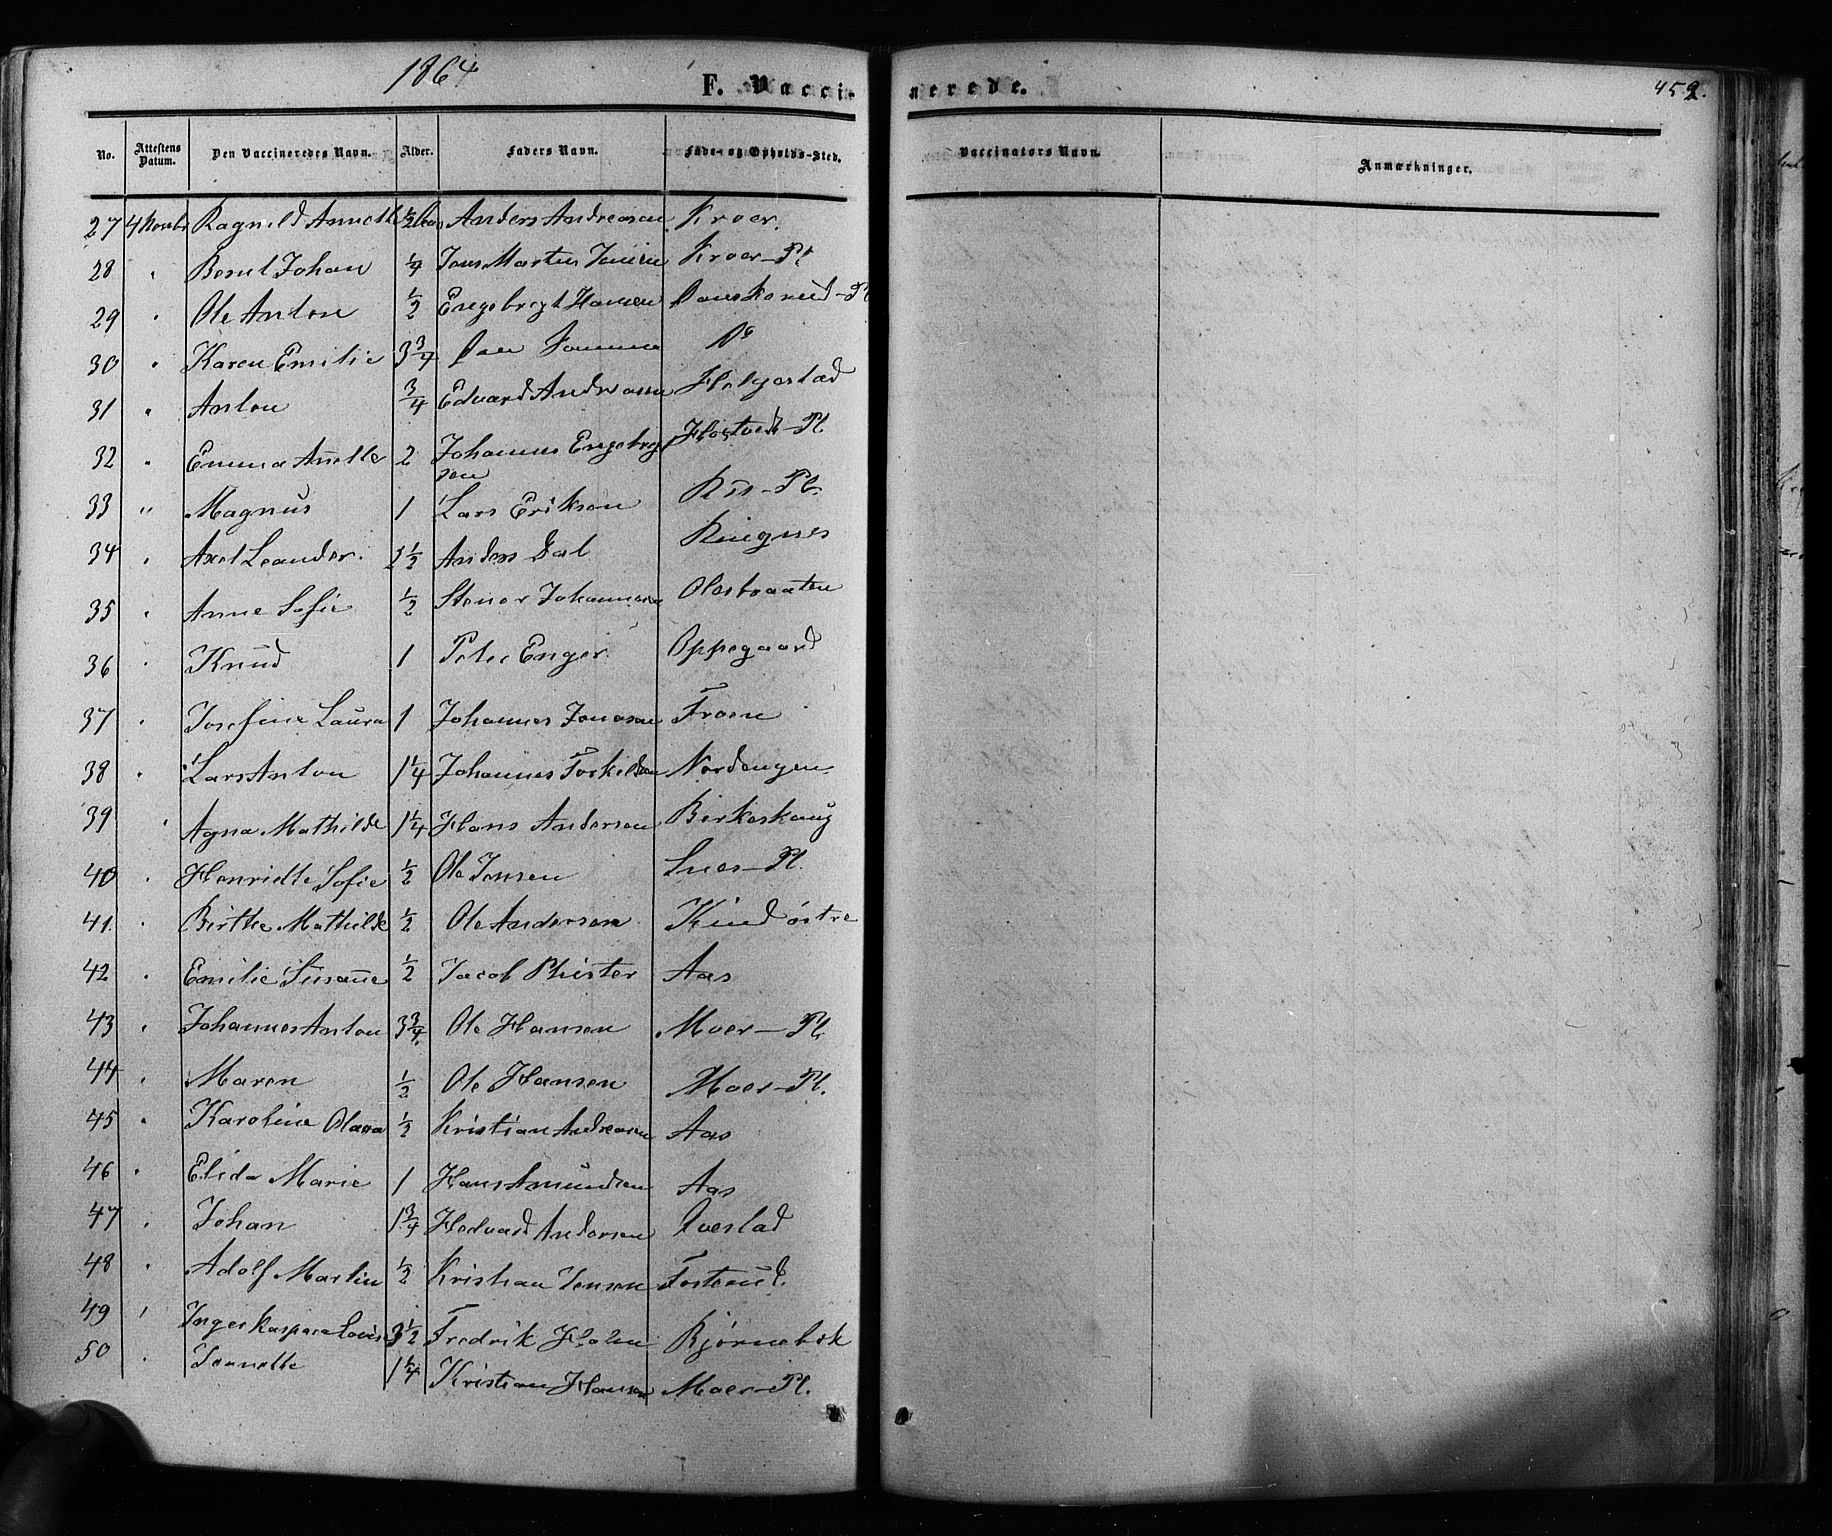 1864
F. Vacci-
nerede.
452.
No. Attestens Datum. Den Vaccineredes Navn. Alder. Faders Navn. Føde- og Opholds-Sted. Vaccinators Navn. Anmærkninger.
27 4 Novbr Ragnild Annette 1/2 Aar Anders Andreasen Kroer.
28 " Bernt Johan 1/4 Jens Martin Jensen Kroer-Pl
29 " Ole Anton 1/2 Engebregt Hansen Danskerud-Pl
30 " Karen Emilie 3 3/4 Den Samme Do
31 " Anton 3/4 Edvard Andreasen Holgestad
32 " Emma Anette 2 Johannes Engebregt
sen Hostvedt-Pl
33 " Magnus 1 Lars Eriksen Riis-Pl.
34 " Axel Leander. 1 1/2 Anders Dal Ringnes
35 " Anne Sofie 1/2 Stener Johannesen Olesbraaten
36 " Knud 1 Peter Enger. Oppegaard
37 " Josefine Laura 1 Johannes Jonasen Froen
38 " Lars Anton 1 1/4 Johannes Torkildsen Nordengen
39 " Agna Mathilde 1 1/4 Hans Andersen Birkeskaug
40 " Henriette Sofie 1/2 Ole Jensen Snes-Pl.
41. " Birthe Mathilde 1/2 Ole Andersen Kind østre
42 " Emilie Susanne 1/2 Jacob Phister Aas
43 " Johannes Anton 3 3/4 Ole Hansen Moer-Pl
44 " Maren 1/2 Ole Hansen Moer-Pl.
45 " Karoline Olava 1/2 Kristian Andreasen Aas
46 " Elida Marie 1 Hans Amundsen Aas
47 " Johan 1 3/4 Hedvard Andersen Qvestad
48 " Adolf Martin 1/2 Kristian Jensen Fosterud.
49 " Inger Kaspara Lovise 3 1/2 Fredrik Holm Bjørnebæk
50 " Jeanette 1 1/4 Kristian Hansen Moer-Pl.